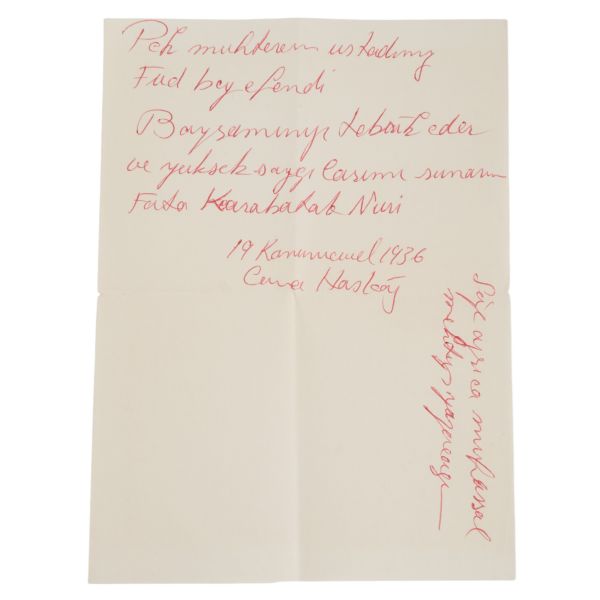 Pek muhterem ustadımız
Fud beyefendi
Bayramınızı tebrik eder
ve yuksek saygılarımı sunarım
Karabatak Nuri
19 Kanunuevvel 1936
Cuma Hasköy
Size ayrıca mufassal
mektup yazacağım